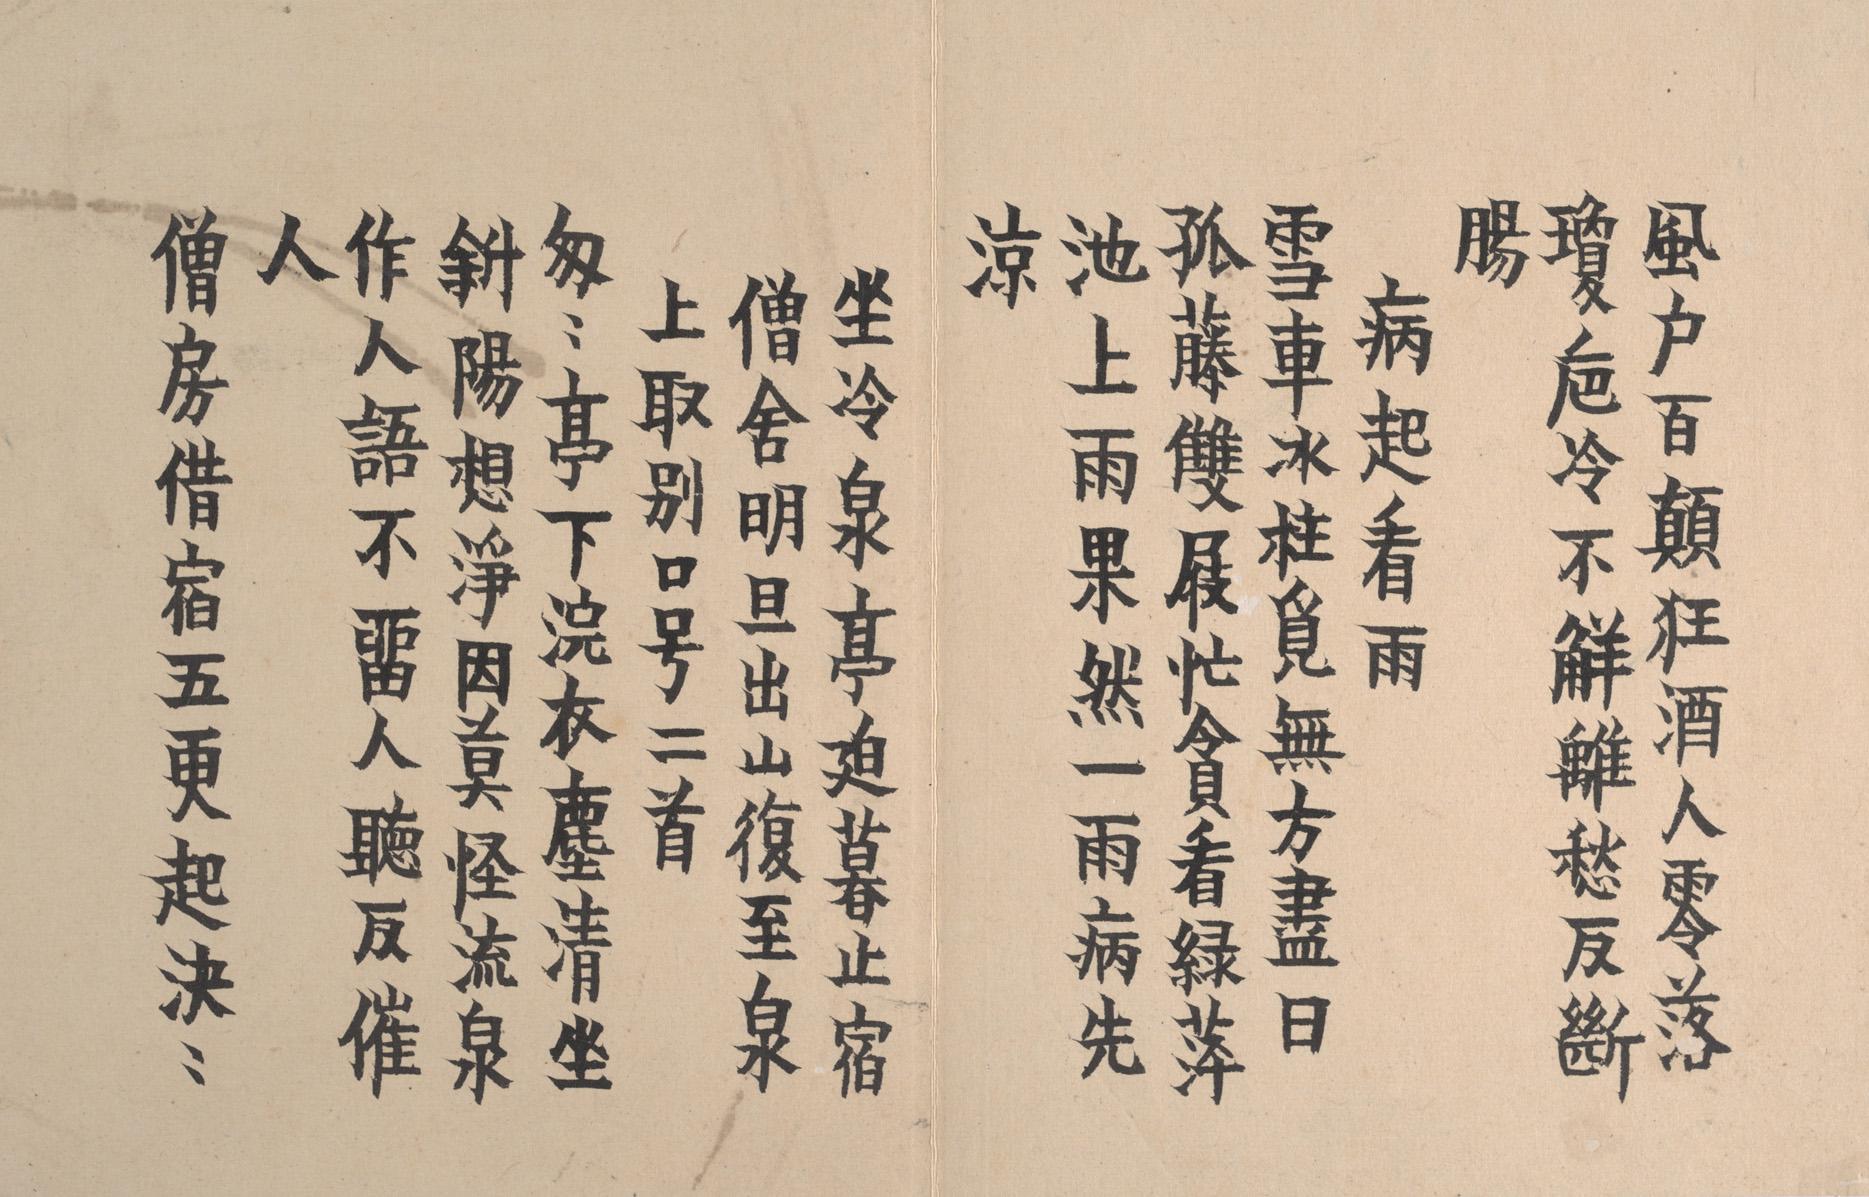 風户百顛狂酒人零落
瓊巵冷不觧離愁反斷
腸
病起看雨
雪車冰柱覓無方盡日
孤藤雙屐忙貪看緑萍
池上雨果然一雨病先
涼
坐冷泉亭迫暮止宿
僧舍明旦出山復至泉
上取别口号二首
匆〻亭下浣衣塵清坐
斜陽想淨因莫怪流泉
作人語不畱人聽反催
人
僧房借宿五更起決〻